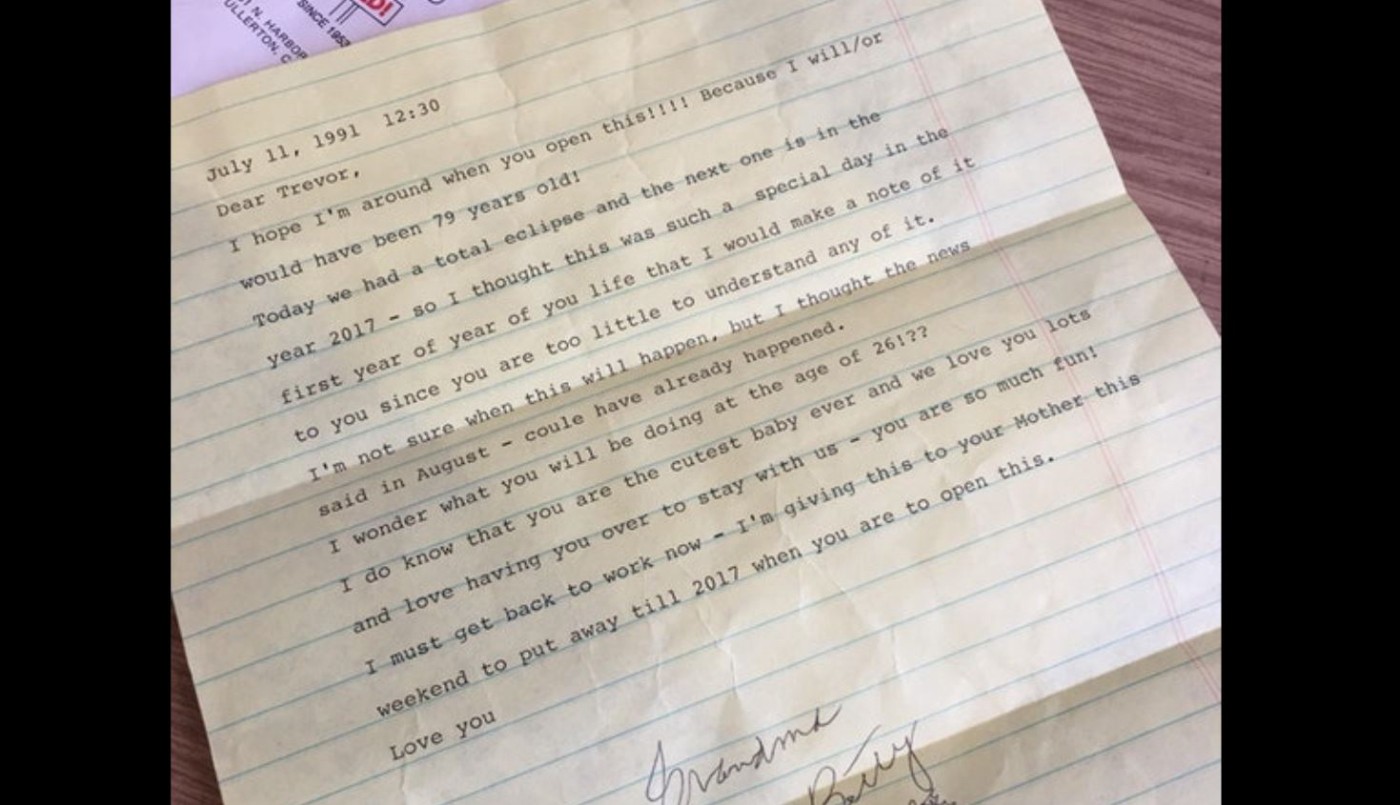 D!
SINCE 1952
N. HARBOR
ULLERTON, C
July 11, 1991 12:30
Dear Trevor,
I hope I'm around when you open this!!!! Because I will/or
would have been 79 years old!
Today we had a total eclipse and the next one is in the
year 2017 - so I thought this was such a special day in the
first year of year of you life that I would make a note of it
to you since you are too little to understand any of it.
I'm not sure when this will happen, but I thought the news
said in August - coule have already happened.
I wonder what you will be doing at the age of 26!??
I do know that you are the cutest baby ever and we love you lots
and love having you over to stay with us - you are so much fun!
I must get back to work now - I'm giving this to your Mother this
weekend to put away till 2017 when you are to open this.
Love you
Grandma
Betty